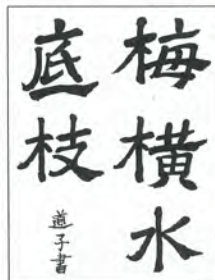 梅横水
底枝
道子書